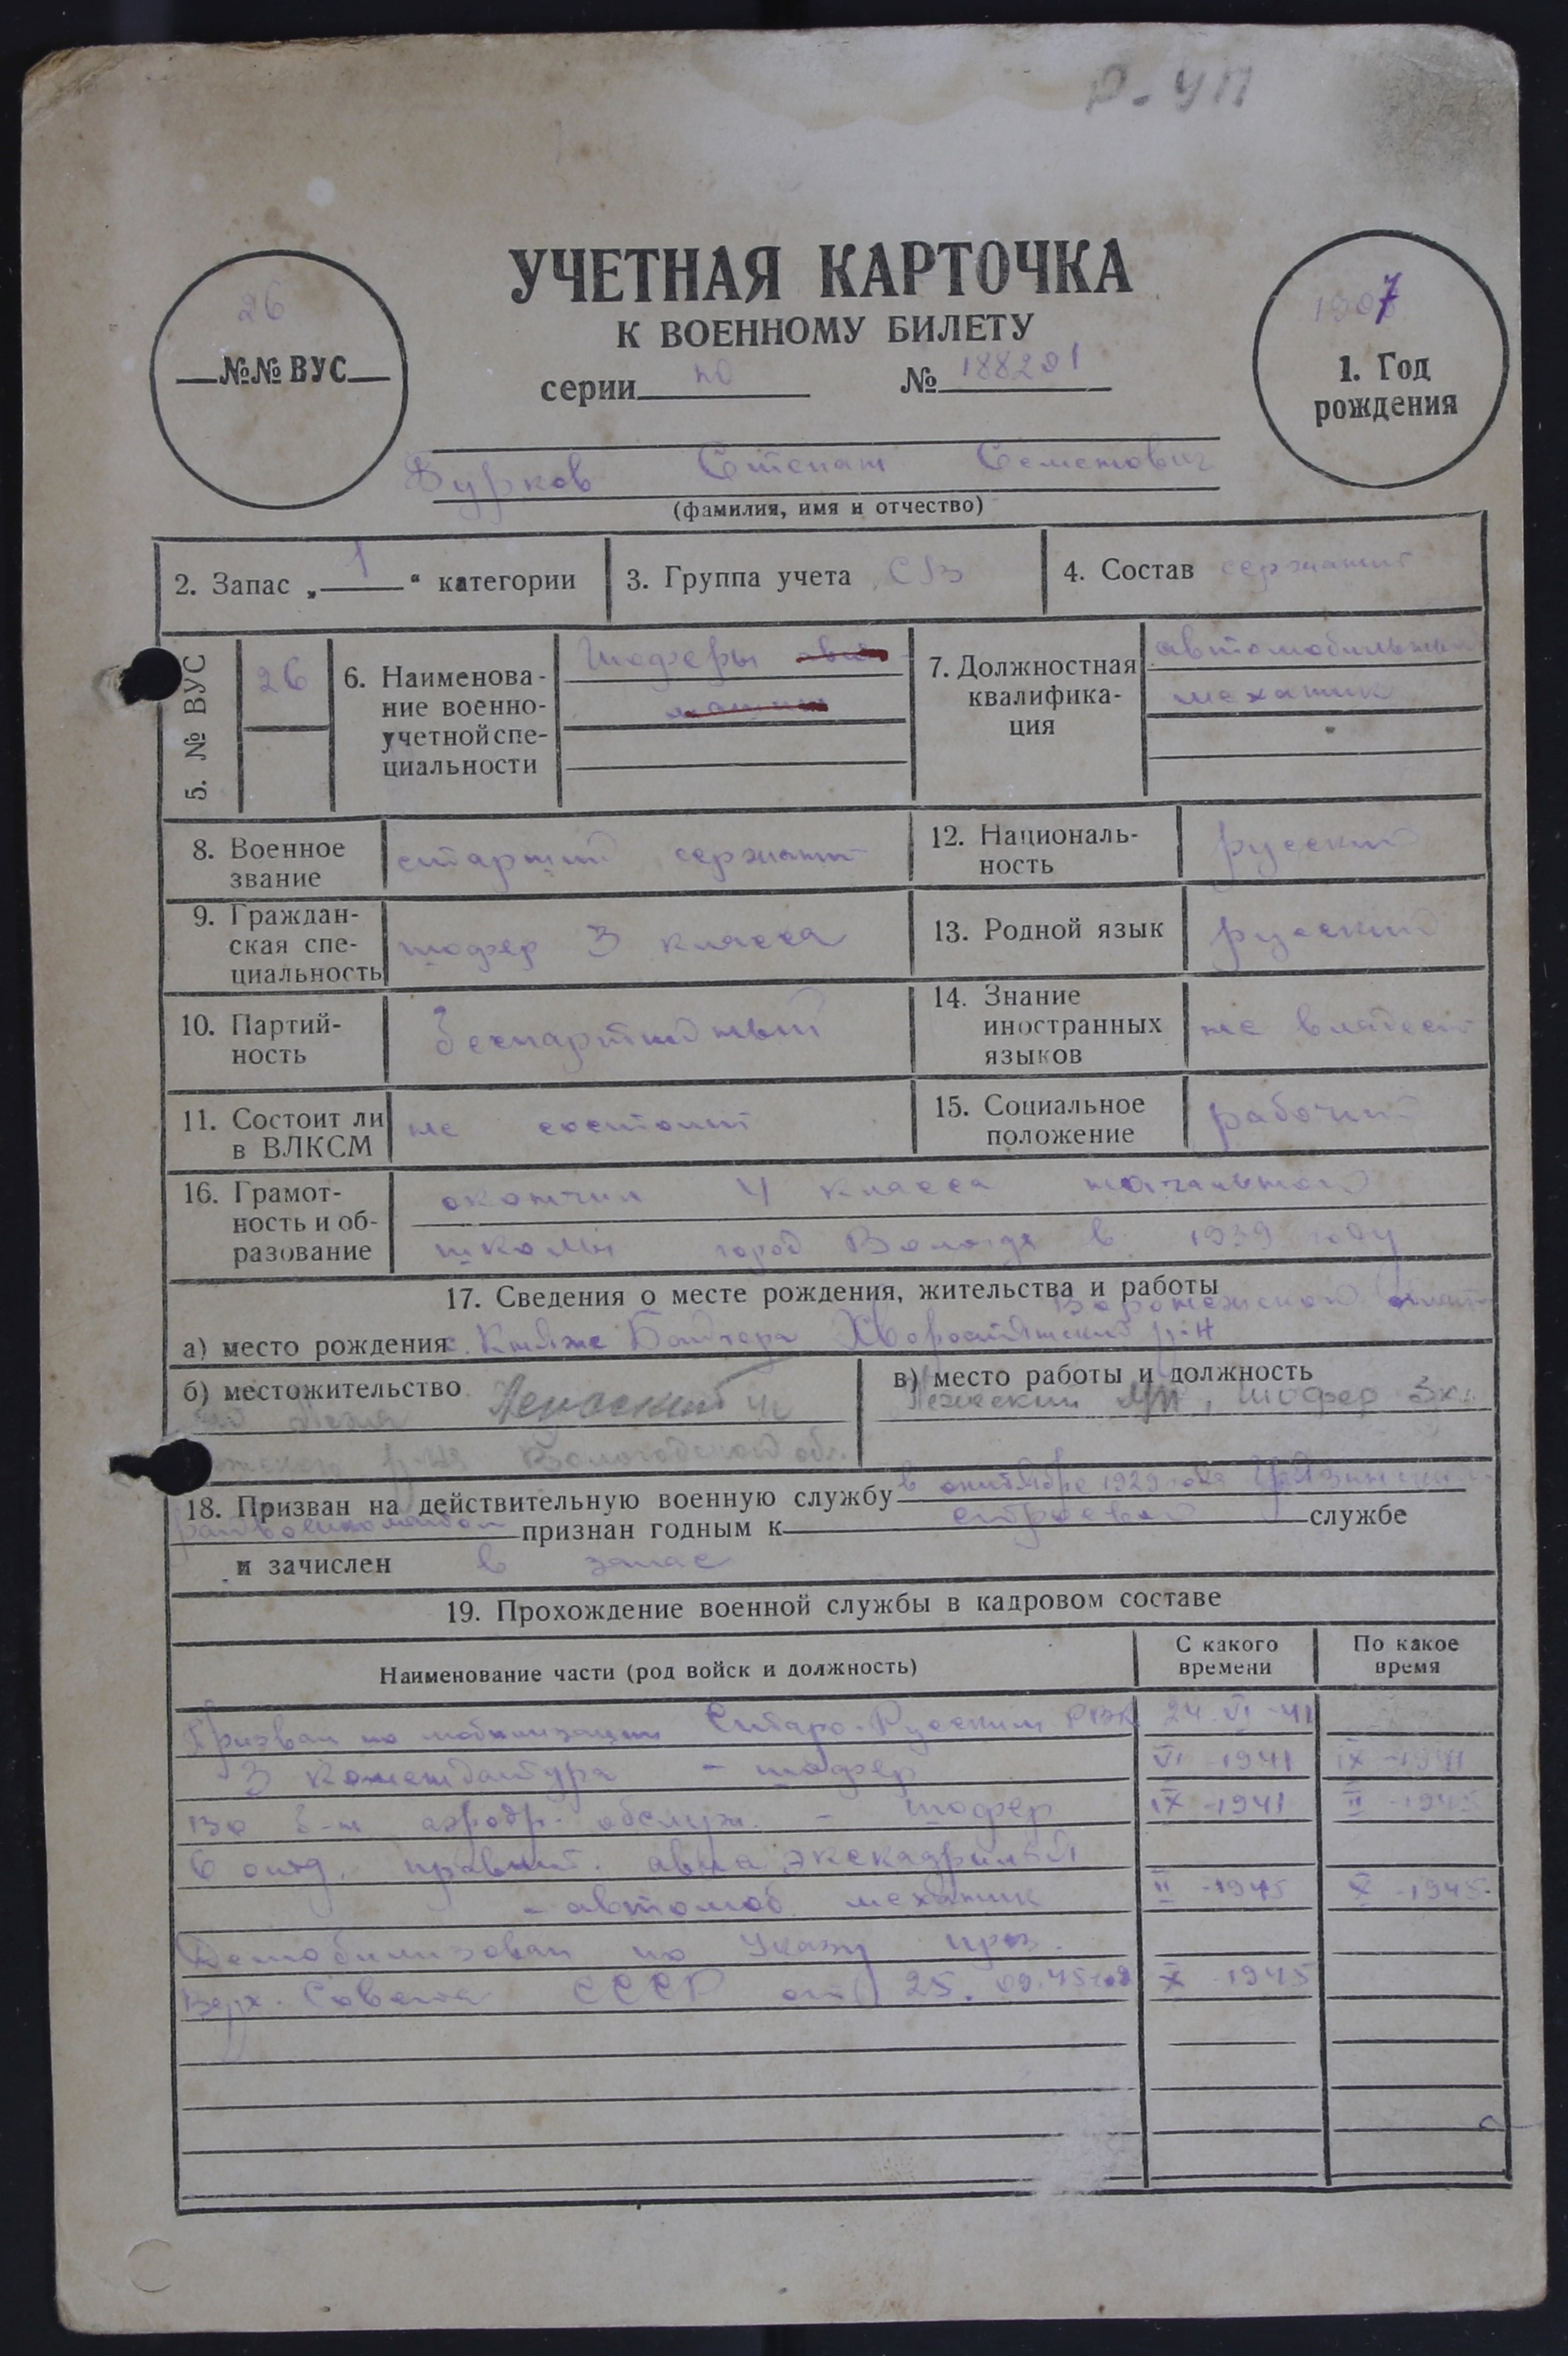 Р-УП
УЧЕТНАЯ КАРТОЧКА
К ВОЕННОМУ БИЛЕТУ
26
№№ ВУС
серии № 188201
1907
1. Год
рождения
Бурков Степан Семенович
(фамилия, имя и отчество)
2. Запас „ 1 “ категории
3. Группа учета СВ
4. Состав сержант
5. № ВУС
26
6. Наименова-
ние военно-
учетной спе-
циальности
Шоферы авто
машин
7. Должностная
квалифика-
ция
автомобильный
механик
8. Военное
звание
старший сержант
12. Националь-
ность
русский
9. Граждан-
ская спе-
циальность
шофер 3 класса
13. Родной язык
русский
10. Партий-
ность
беспартийный
14. Знание
иностранных
языков
не владеет
11. Состоит ли
в ВЛКСМ
не состоит
15. Социальное
положение
рабочий
16. Грамот-
ность и об-
разование
окончил 4 класса начальной
школы город Вологда в 1939 году
17. Сведения о месте рождения, жительства и работы
Воронежской
а) место рождения с. Княже Хворостянский р-н
б) местожительство
Вологодской обл.
в) место работы и должность
шофер 3 кл.
18. Призван на действительную военную службу в октябре 1929 года
райвоенкоматом признан годным к строевой службе
и зачислен в запас
19. Прохождение военной службы в кадровом составе
Наименование части (род войск и должность)
С какого
времени
По какое
время
Призван по мобилизации Старо-Русским РВК 24 VI-41
3 комендатура - шофер VI-1941 IX-1941
б-н аэродр. обслуж. - шофер IX-1941 II-1945
6 отд. авиа экскадрилья
- автомоб. механик II-1945 X-1945
Демобилизован по Указу през.
Верх. Совета СССР от 25.09.45 год X-1945